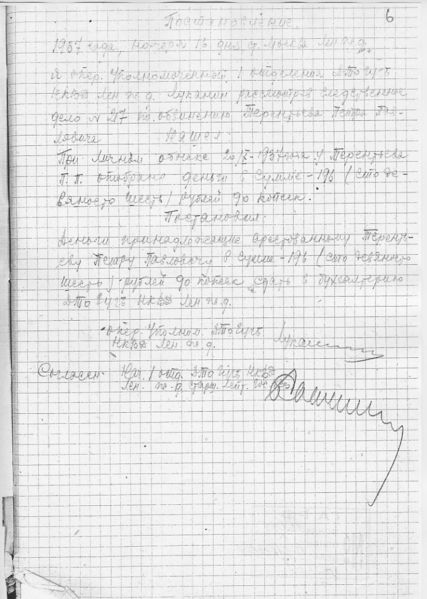 6
Постановление.
1937 года, ноября 13 дня ст. Мыла Лен ж.д.
Я опер. Уполномоченный 1 отделения ДТО ГУГБ
НКВД Лен ж.д. Лукашин рассмотрев следственное
дело № 217 по обвинению Терентьева Петра Пав-
ловича Нашел:
При личном обыске 1937 года у Терентьева
П.П. отобрано деньги в сумме - 196 (сто де-
вяносто шесть) рублей 90 копеек.
Постановил:
Деньги принадлежащие арестованному Терент-
еву Петру Павловичу в сумме - 196 (сто девяносто
шесть) рублей 90 копеек сдать в бухгалтерию
ДТО ГУГБ НКВД Лен ж.д.
Опер. Уполном. ДТО ГУГБ
НКВД Лен ж.д.
Согласен: Нач. 1 отд. ДТО ГУГБ НКВД
Лен. ж.д.